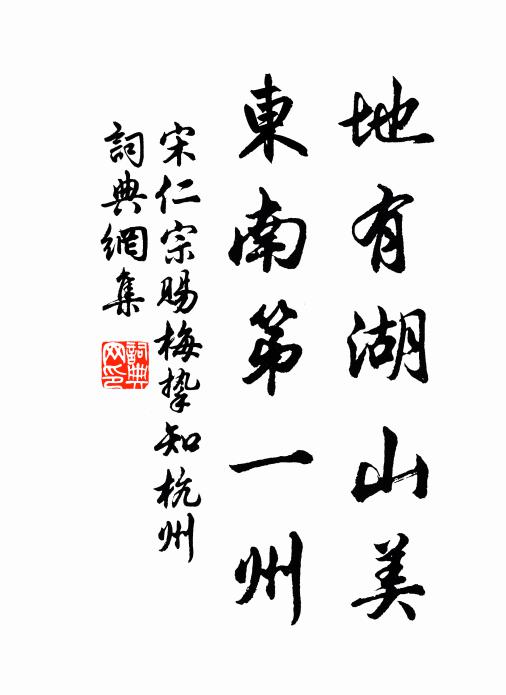 地有湖山美
東南第一州
宋仁宗賜梅挚知杭州
詞典網集
詞典网印